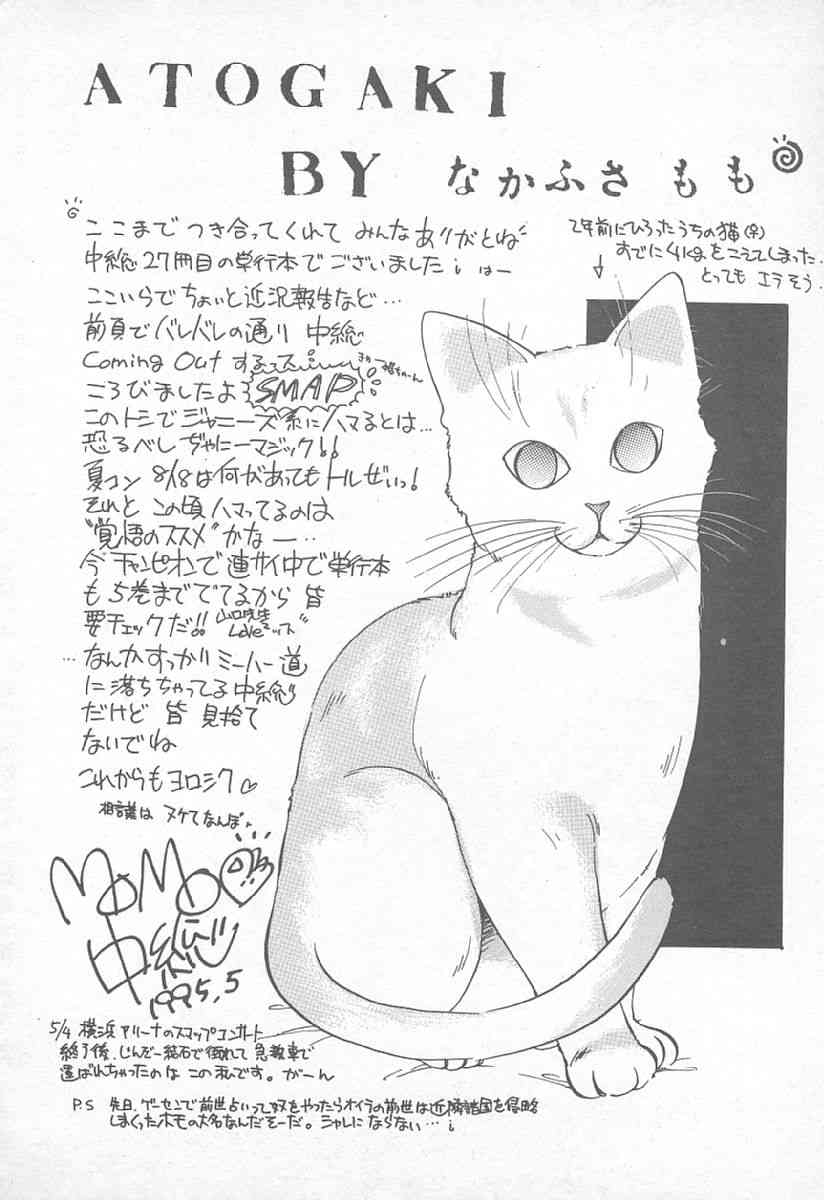 ATOGAKI
BY なかふさ もも
ここまで つき合ってくれて みんなありがとね
中総27冊目の単行本でございました
ここいらでちょいと近況報告など…
前頁でバレバレの通り 中総
Coming Out する
ころびましたよ SMAP
このトシで ジャニーズ系にハマるとは…
恐るべし ぢゃにーマジック!!
夏コン 8/18は何があってもトルぜいっ!
それと この頃ハマってるのは
"覚悟のススメ"かなー…
今チャンピオンで連サイ中で単行本
も5巻まででてるから 皆
要チェックだ!! 山口先生Love
…なんかすっかりミーハー道
に落ちちゃってる中総
だけど 皆 見捨て
ないでね
これからもヨロシク♡
ヌケてなんぼ
MOMO
中総
1995.5
2年前にひろったうちの猫(♀)
すでに4kgをこえてしまった
とっても エラそう.
5/4 横浜アリーナのスマップコンサート
終了後、じんぞー結石で倒れて 救急車で
運ばれちゃったのは この私です。がーん
P.S 先日、ゲーセンで前世占いって奴をやったらオイラの前世は近隣諸国を侵略
しまくったホモの大名なんだそーだ。シャレにならない…